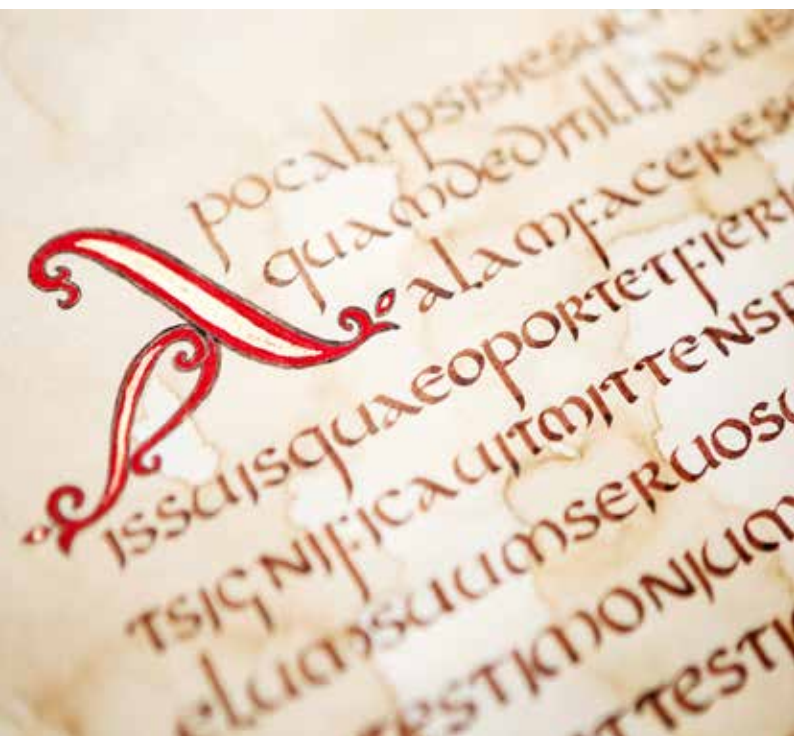 Apocalypsisiesuc
quamdeditillideus
alamfacerese
issuisquaeoportetfieri
tsignificauitmittensp
elumsuumseruosu
testimonium
ttesti